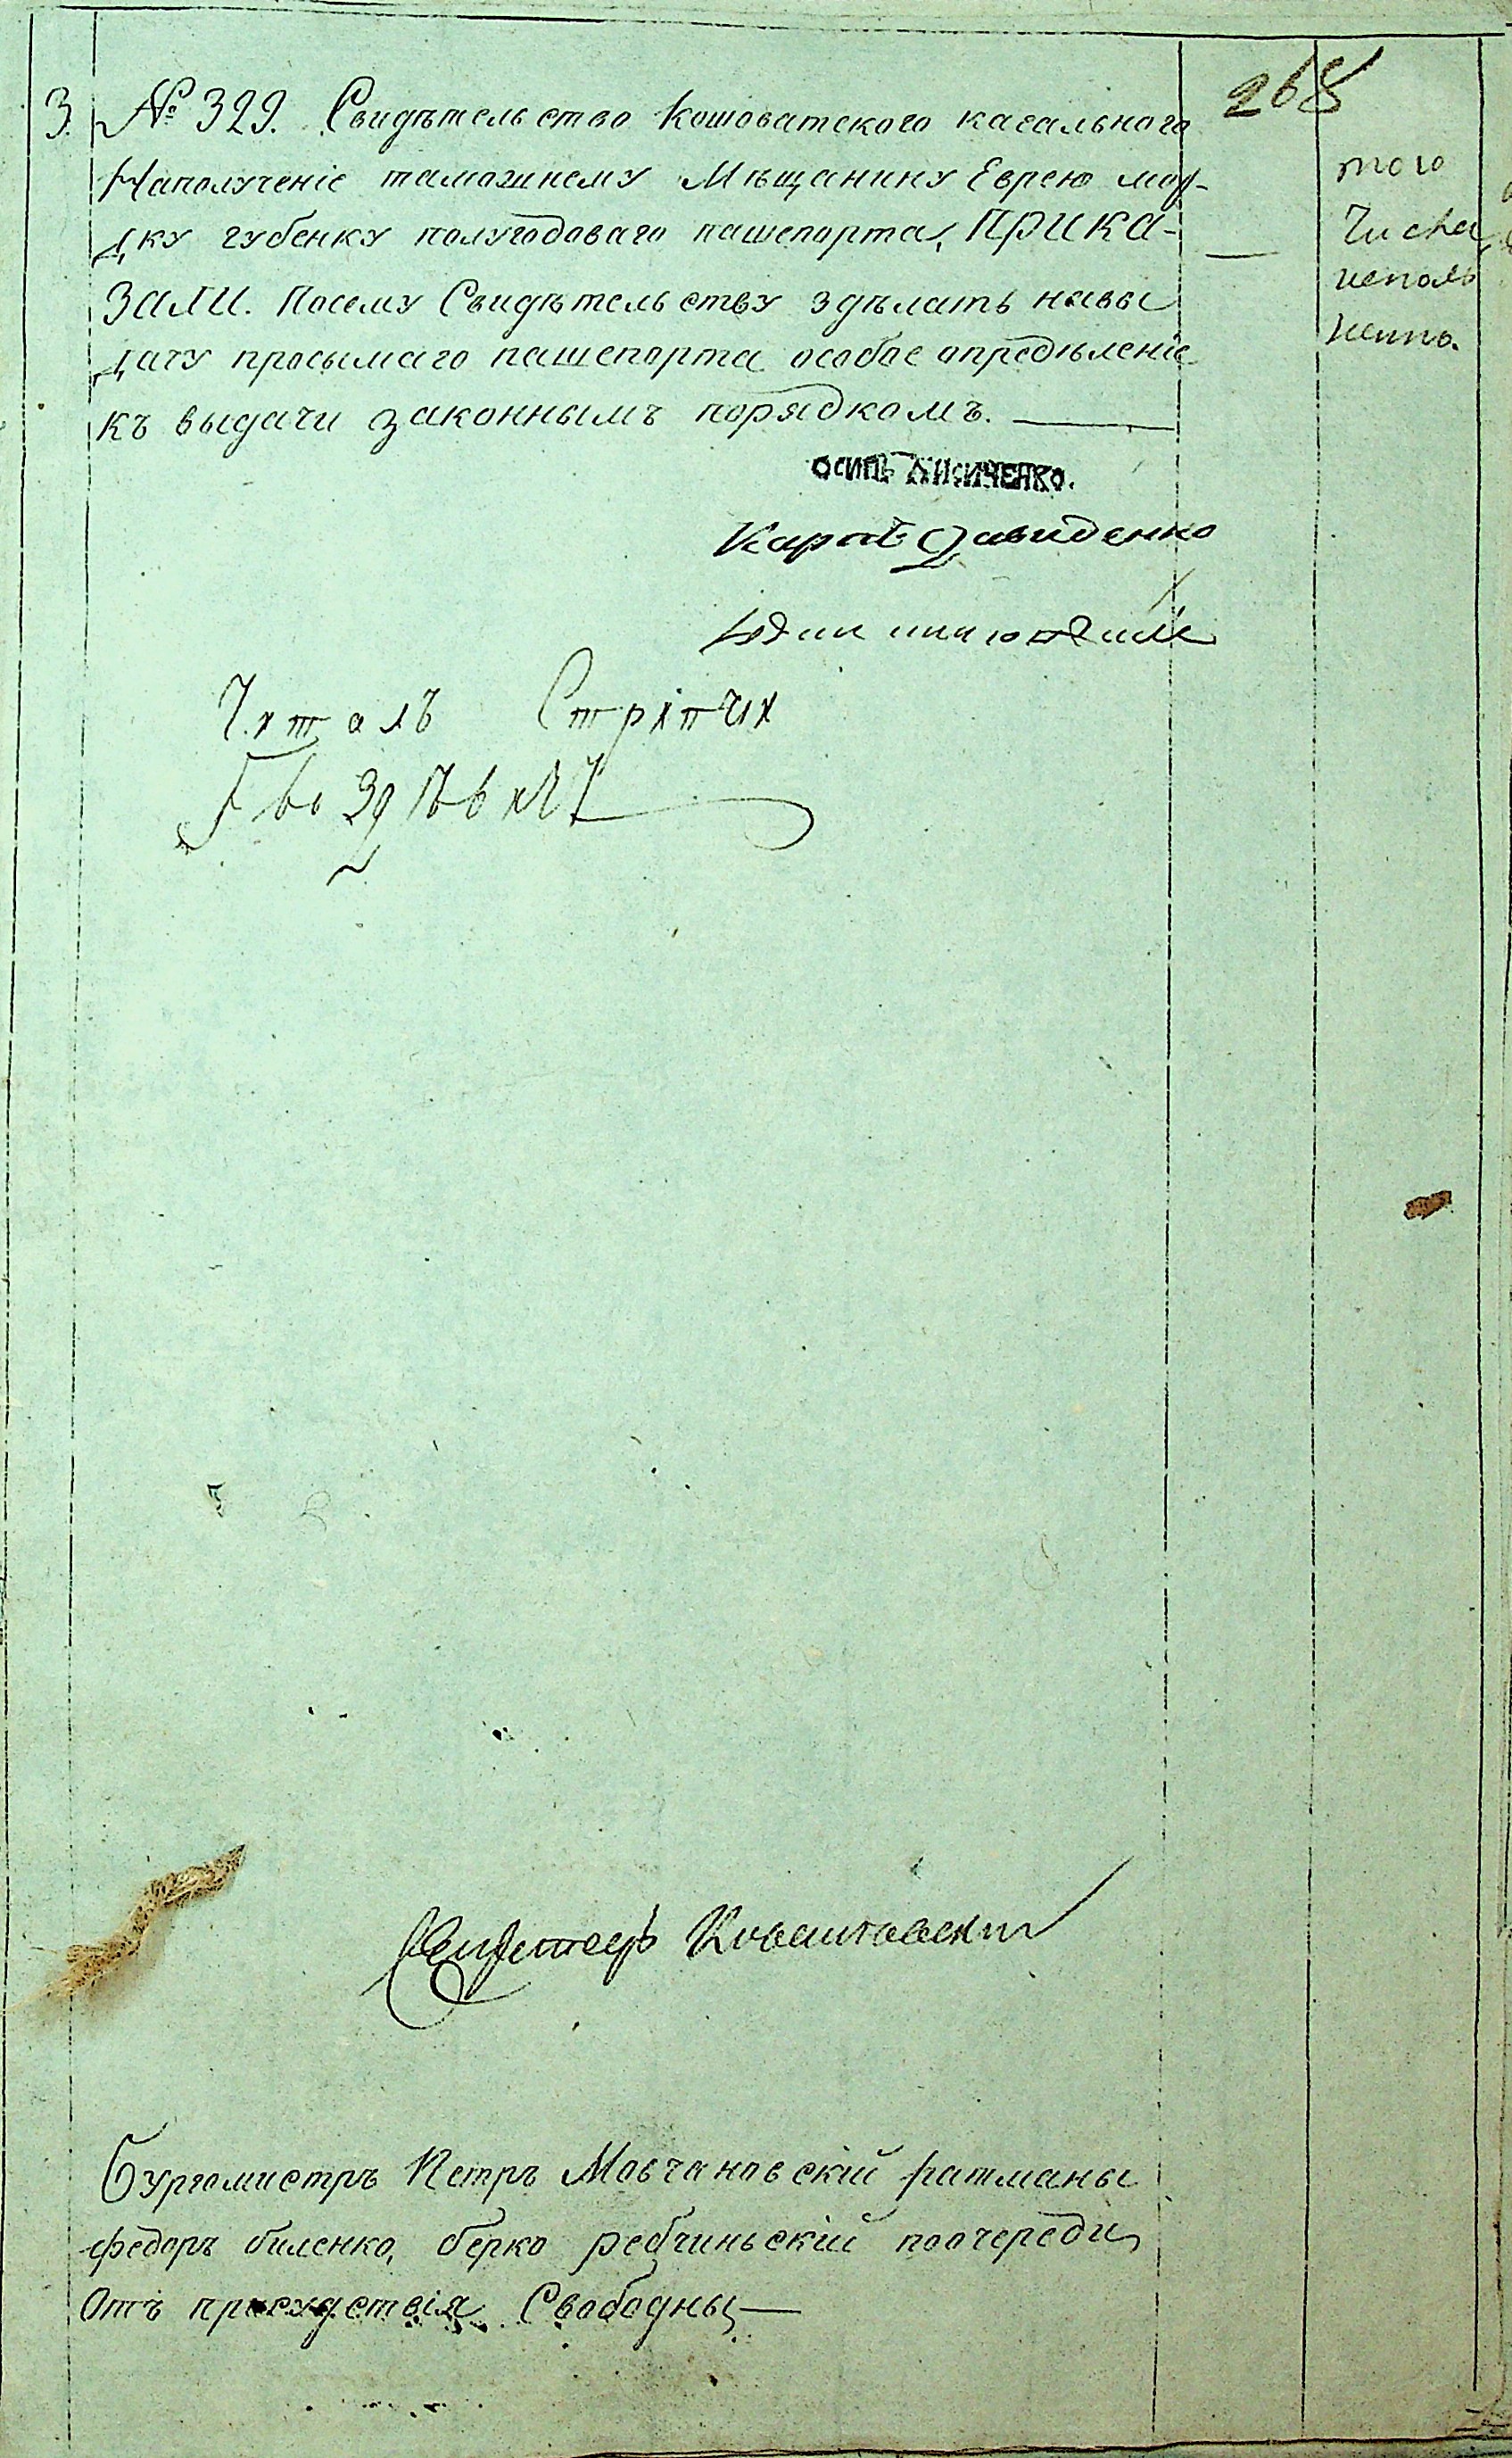 268
3. № 329. Свидѣтельство Кошоватского кагального
Наполученіе тамошнему Мѣщанину Еврею мор-
дку губенку полугодоваго пашепорта, ПРИКА-
ЗАЛИ. Посему Свидѣтельству здѣлать навы
дачу просымаго пашепорта особое опредѣленіе
къ выдачи законнымъ порядкомъ.
того
Числа
исполь
ненно.
ОСИПЪ ЛИСИЧЕНКО.
Карпъ Давиденко
Читалъ Стряпчи
Гвоздѣвичъ
Секретарь
Бургомистръ Петръ Мовчановскій ратманы
федоръ биленко, берко ребчиньскій поочереди
Отъ прысудствія Свободны